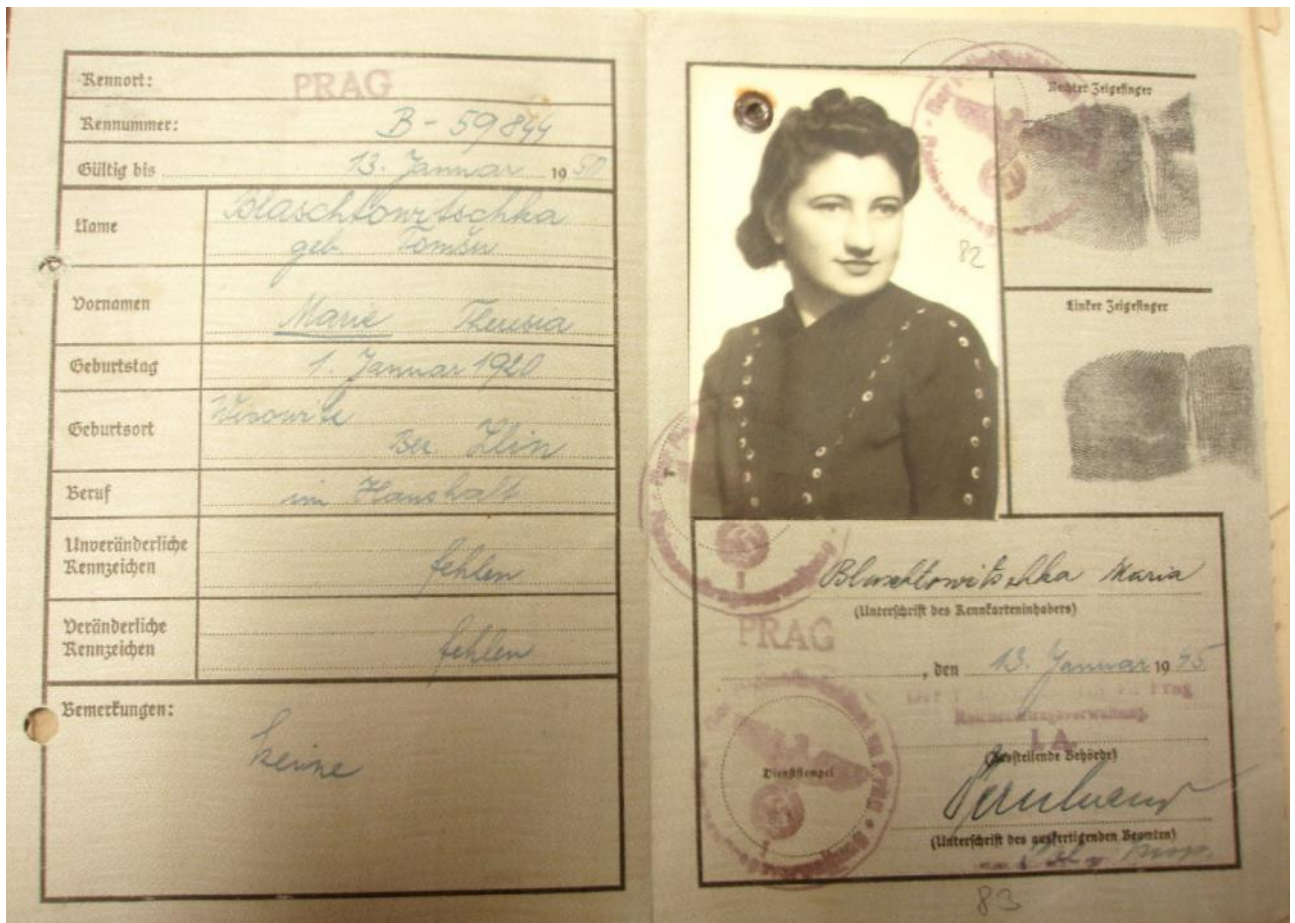 Kennort: PRAG
Kennummer: B - 59844
Gültig bis 13. Januar 1950
Name Blaschtowitschka
geb. Tomšu
Vornamen Marie Theresia
Geburtstag 1. Januar 1920
Geburtsort Wisowitz
Bez. Zlin
Beruf im Haushalt
Unveränderliche
Kennzeichen fehlen
Veränderliche
Kennzeichen fehlen
Bemerkungen:
keine
Rechter Zeigefinger
82
Linker Zeigefinger
Blaschtowitschka Maria
(Unterschrift des Kennkarteninhabers)
PRAG
, den 13. Januar 1945
Prag
Reichsauftragsverwaltung.
I.A.
(Ausstellende Behörde)
Dienststempel
(Unterschrift des ausfertigenden Beamten)
83